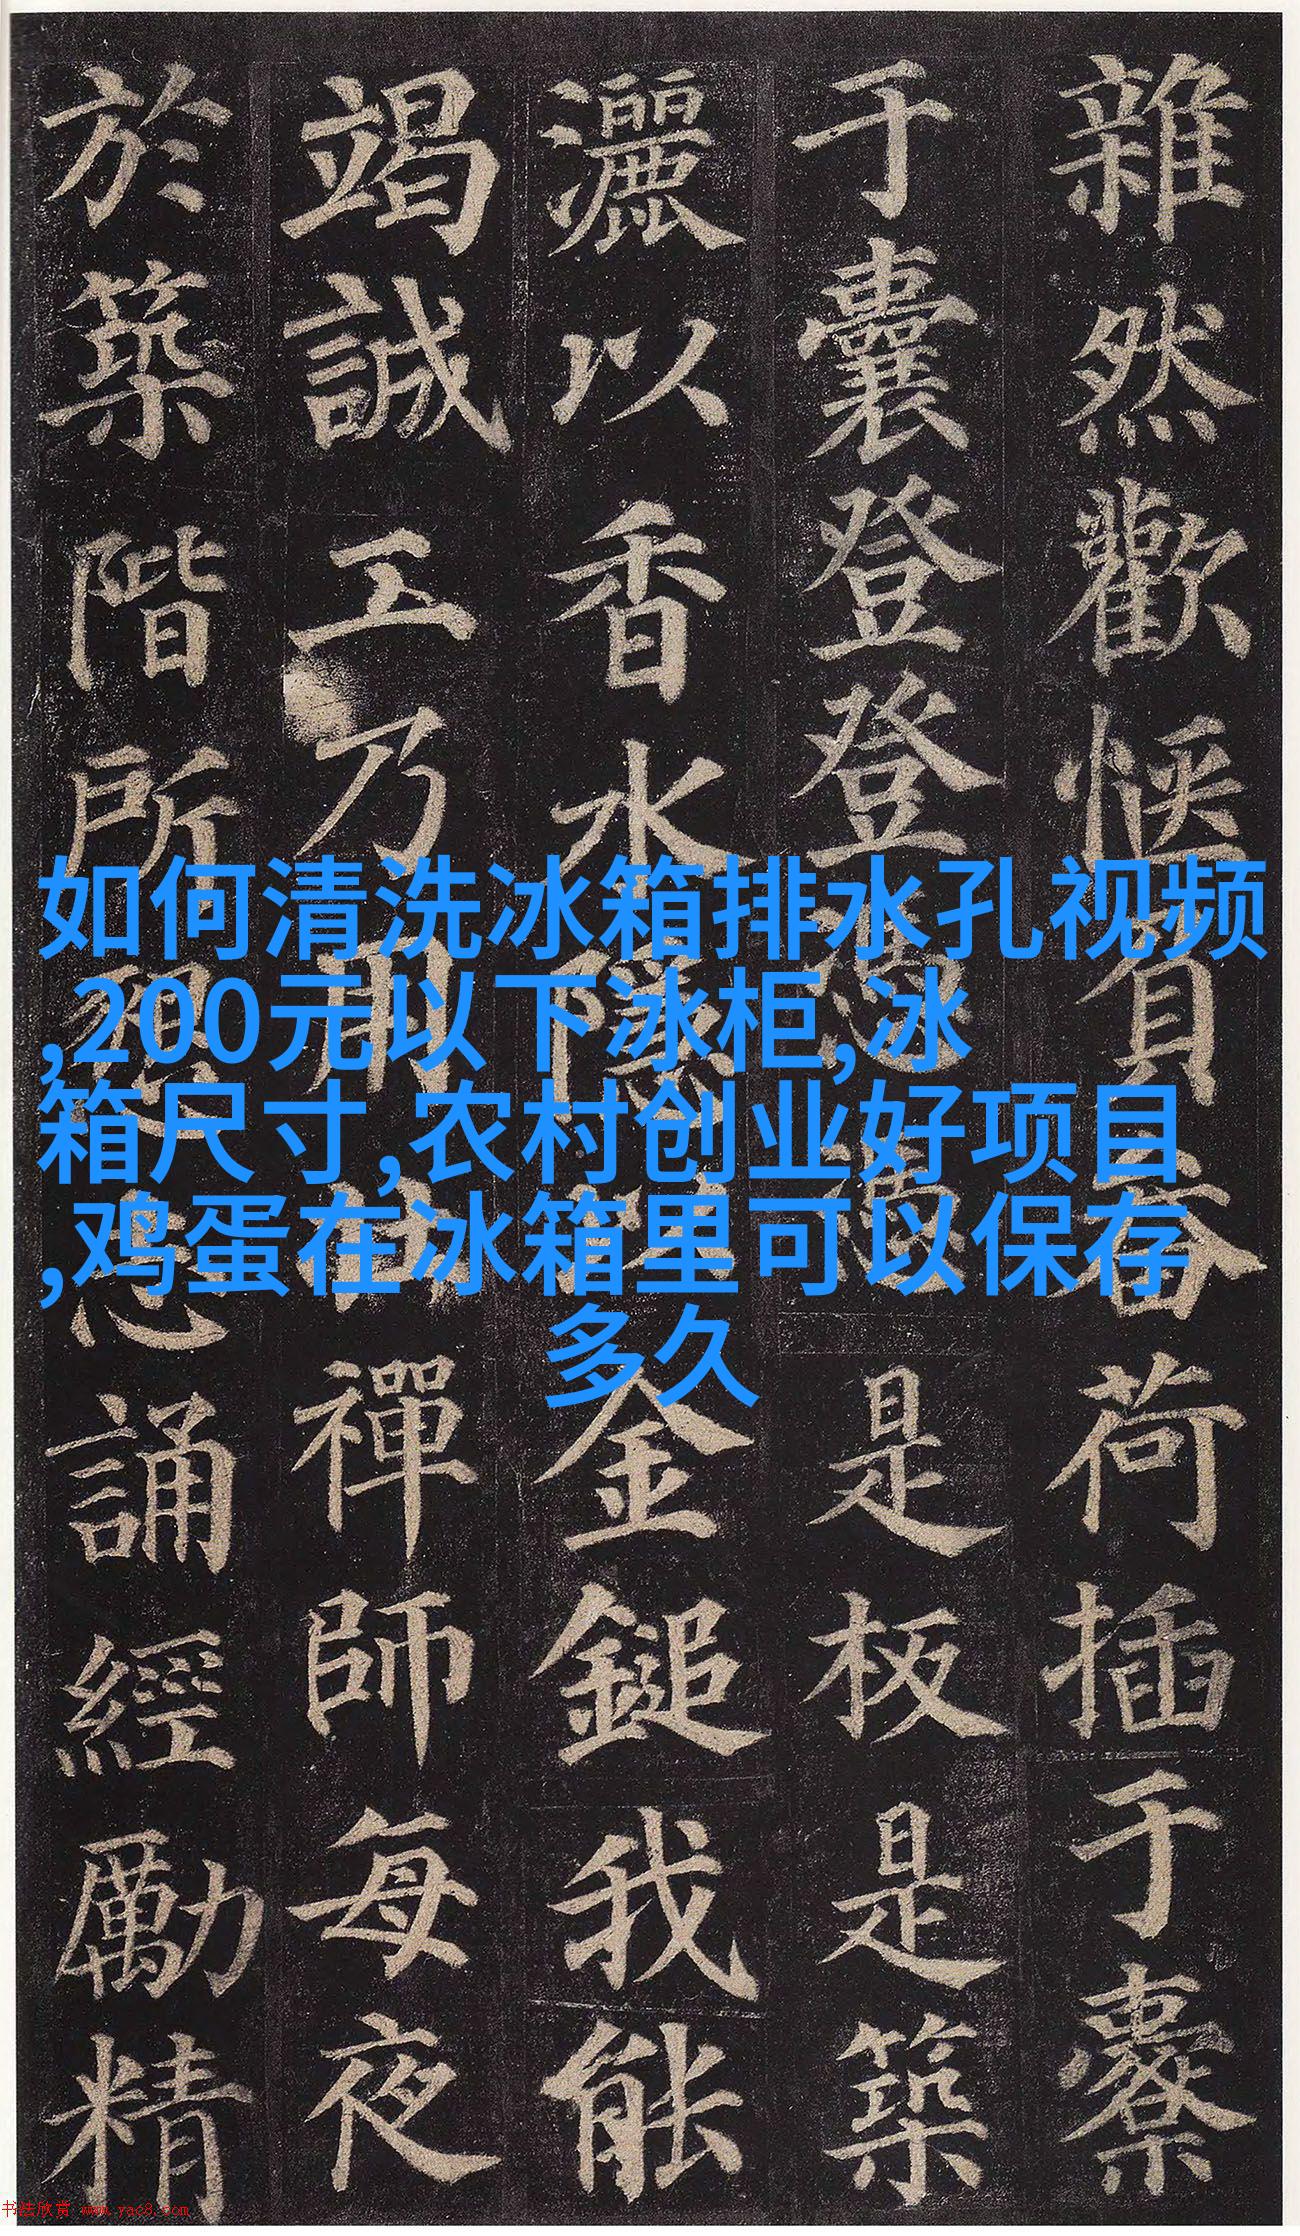 雜然歡愜負畚荷插于橐
于囊登登憑憑是板是築
灑以香水隱以金鎚我能
竭誠工乃用壯禪師每夜
於築階所懇志誦經勵精
如何清洗冰箱排水孔视频
,200元以下冰柜,冰
箱尺寸,农村创业好项目
,鸡蛋在冰箱里可以保存
多久
书法欣赏 www.yac8.com